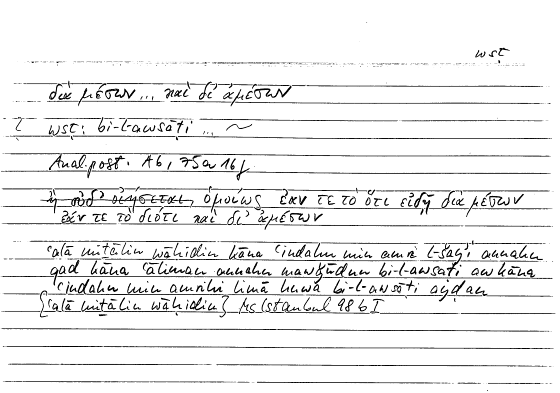 wsṭ
διὰ μέσων... καὶ δι' ἀμέσων
wsṭ: bi-l-awsāṭi ... ~
Anal.post. A6, 75a 16f
ἢ οὐδ' οἰήσεται, ὁμοίως ἐάν τε τὸ ὅτι εἰδῇ διὰ μέσων
ἐάν τε τὸ διότι καὶ δι' ἀμέσων
ʿalā miṯālin wāḥidin kāna ʿindahu min amri l-šayʾi annahu
qad kāna ʿāliman annahu mawǧūdun bi-l-awsāṭi aw kāna
ʿindahu min amrihi limā huwa bi-l-awsāṭi ayḍan
{ʿalā miṯālin wāḥidin} Ms Istanbul 98b I